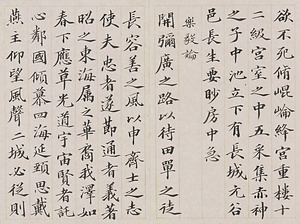 欲不死修崐崘絳宮重樓十
二級宮室之中五采集赤神
之子中池立下有長城玄谷
邑長生要眇房中急
樂毅論
開彌廣之路以待田單之徒
長容善之風以申齊士之志
使夫忠者遂節通者義著
昭之東海屬之華裔我澤如
春下應草光道宇宙賢者託
心鄰國傾慕四海延頸思戴
燕主仰望風聲二城必從則